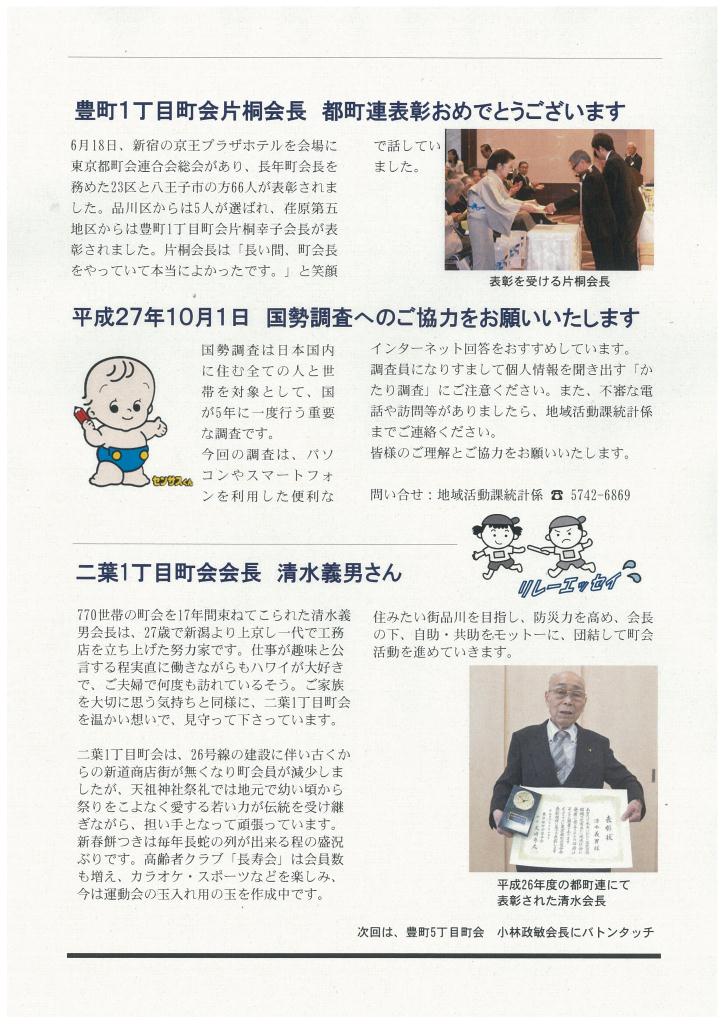 豊町1丁目町会片桐会長　都町連表彰おめでとうございます
6月18日、新宿の京王プラザホテルを会場に
東京都町会連合会総会があり、長年町会長を
務めた23区と八王子市の方66人が表彰されま
した。品川区からは5人が選ばれ、荏原第五
地区からは豊町1丁目町会片桐幸子会長が表
彰されました。片桐会長は「長い間、町会長
をやっていて本当によかったです。」と笑顔
で話してい
ました。
表彰を受ける片桐会長
平成27年10月1日　国勢調査へのご協力をお願いいたします
国勢調査は日本国内
に住む全ての人と世
帯を対象として、国
が5年に一度行う重要
な調査です。
今回の調査は、パソ
コンやスマートフォ
ンを利用した便利な
センサスくん
インターネット回答をおすすめしています。
調査員になりすまして個人情報を聞き出す「か
たり調査」にご注意ください。また、不審な電
話や訪問等がありましたら、地域活動課統計係
までご連絡ください。
皆様のご理解とご協力をお願いいたします。
問い合せ：地域活動課統計係 ☎ 5742-6869
リレーエッセイ
二葉1丁目町会会長　清水義男さん
770世帯の町会を17年間束ねてこられた清水義
男会長は、27歳で新潟より上京し一代で工務
店を立ち上げた努力家です。仕事が趣味と公
言する程実直に働きながらもハワイが大好き
で、ご夫婦で何度も訪れているそう。ご家族
を大切に思う気持ちと同様に、二葉1丁目町会
を温かい想いで、見守って下さっています。
二葉1丁目町会は、26号線の建設に伴い古くか
らの新道商店街が無くなり町会員が減少しま
したが、天祖神社祭礼では地元で幼い頃から
祭りをこよなく愛する若い力が伝統を受け継
ぎながら、担い手となって頑張っています。
新春餅つきは毎年長蛇の列が出来る程の盛況
ぶりです。高齢者クラブ「長寿会」は会員数
も増え、カラオケ・スポーツなどを楽しみ、
今は運動会の玉入れ用の玉を作成中です。
住みたい街品川を目指し、防災力を高め、会長
の下、自助・共助をモットーに、団結して町会
活動を進めていきます。
表彰状
清水義男様
平成26年度の都町連にて
表彰された清水会長
次回は、豊町5丁目町会　小林政敏会長にバトンタッチ